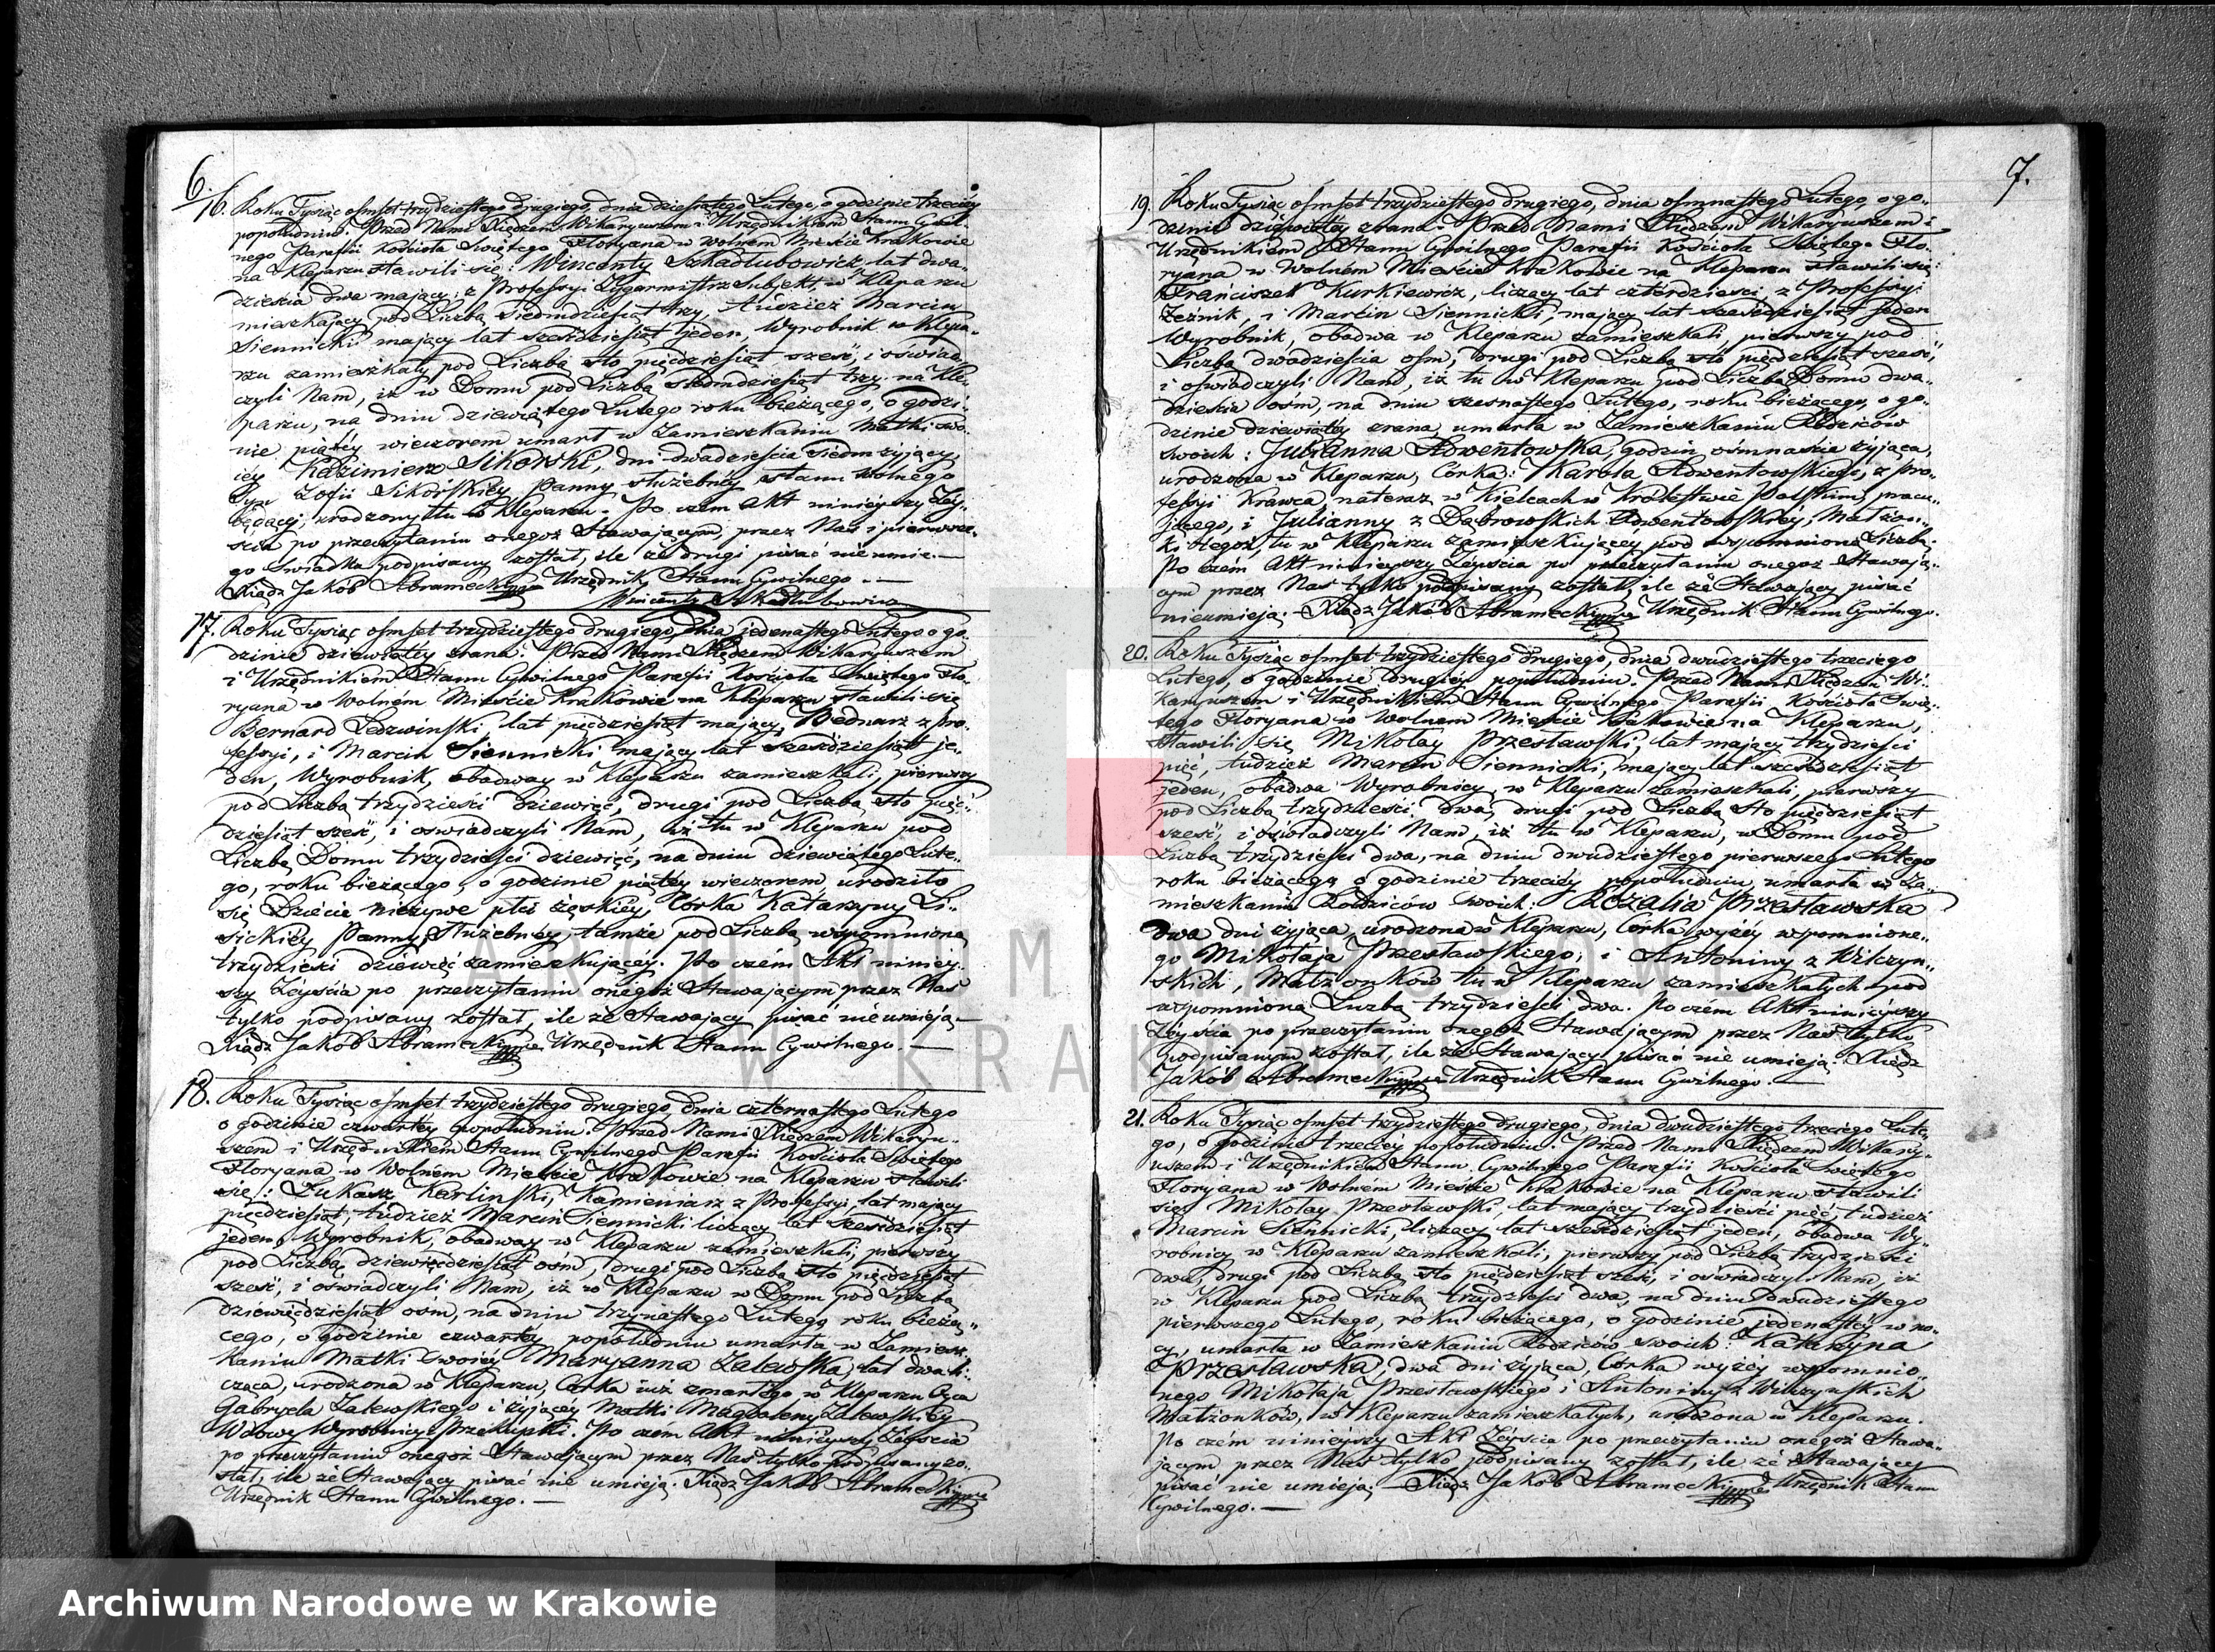 6.
16. Roku Tysiąc ośmset trzydziestego drugiego, dnia dziesiątego Lutego, o godzinie trzeciéy
popołudniu. Przed Nami Xiędzem Wikaryuszem i Urzędnikiem Stanu Cywil„
nego Parafii Kościoła Świętego Floryana w wolnem Mieście Krakowie
na Kleparzu stawili się: Wincenty Szkadłubowicz lat dwa„
dzieścia dwa mający z Professyi Zygarmistrz Subjekt, w Kleparzu
mieszkający pod Liczbą siedmdziesiąt trzy, tudzież Marcin
Siennicki mający lat sześdziesiąt jeden, Wyrobnik w Klepa„
rzu zamieszkały pod Liczbą sto pięćdziesiąt sześć, i oświad„
czyli Nam, iż w Domu pod Liczbą siedmdziesiąt trzy na Kle„
parzu, na dniu dziewiątego Lutego roku bieżącego, o godzi„
nie piątéy wieczorem umarł w Zamieszkaniu Matki swo„
iéy Kazimierz Sikorski, dni dwadzieścia siedm żyjący,
Syn Zofii Sikorskiéy Panny służebnéy stanu wolnego
będącéj, urodzony tu w Kleparzu. Po czem Akt ninieyszy Zéy„
ścia po przeczytaniu onegoż Stawającym, przez Nas i pierwsze„
go Swiadka podpisany został, ile że drugi pisać nieumie.—
Xiądz Jakób Abramecki Urzędnik Stanu Cywilnego.—
Wincenty Szkadłubowicz
17. Roku Tysiąc ośmset trzydziestego drugiego, dnia jedenastego Lutego o go„
dzinie dziewiątéy zrana. Przed Nami Xiędzem Wikaryuszem
i Urzędnikiem Stanu Cywilnego Parafii Kościoła Świętego Flo„
ryana w Wolném Mieście Krakowie na Kleparzu stawili się
Bernard Ledzwiński lat pięćdziesiąt mający, Bednarz z pro„
fessyi, i Marcin Siennicki mający lat sześdziesiąt je„
den, Wyrobnik, obadway w Kleparzu zamieszkali, pierwszy
pod Liczbą trzydzieści dziewięć, drugi pod Liczbą sto pięć„
dziesiąt sześć, i oświadczyli Nam, iż tu w Kleparzu pod
Liczbą Domu trzydzieści dziewięć, na dniu dziewiątego Lute„
go, roku bieżącego, o godzinie piątéy wieczorem, urodziło
się Dziécie nieżywe płci żęskiéy, Córka Katarzyny Li„
sickiéy Panny Służebnéy, tamże pod Liczbą wspomnioną
trzydzieści dziewięć zamieszkującéy. Po czém Akt niniey„
szy Zéyścia po przeczytaniu onegoż Stawającym przez Nas
tylko podpisany został, ile że Stawający pisać nieumieją.—
Xiądz Jakób Abramecki Urzędnik Stanu Cywilnego.—
18. Roku Tysiąc ośmset trzydziestego drugiego, dnia czternastego Lutego
o godzinie czwartéy popołudniu. Przed Nami Xiędzem Wikaryu„
szem i Urzędnikiem Stanu Cywilnego Parafii Kościoła Świętego
Floryana w Wolném Mieście Krakowie na Kleparzu stawili
się: Łukasz Karliński, Kamieniarz z Professyi, lat mający
pięćdziesiąt, tudzież Marcin Siennicki liczący lat sześdziesiąt
jeden, Wyrobnik, obadway w Kleparzu zamieszkali, pierwszy
pod Liczbą dziewięćdziesiąt ośm, drugi pod Liczbą sto pięćdziesiąt
sześć, i oświadczyli Nam, iż w Kleparzu w Domu pod Liczbą
dziewięćdziesiąt ośm, na dniu trzynastego Lutego roku bieżą„
cego, o godzinie czwartéy popołudniu umarła w Zamiesz„
kaniu Matki swoiéy Maryanna Zalewska, lat dwa li„
cząca, urodzona w Kleparzu, Córka iuż zmarłego w Kleparzu Oyca
Gabryela Zalewskiego i żyjącéy Matki Magdaleny Zalewskiéy
Wdowy Wyrobnicy Przekupki. Po czém Akt ninieyszy Zéyścia
po przeczytaniu onegoż Stawającym przez Nas tylko podpisany zo„
stał, ile że Stawający pisać nie umieją. Xiądz Jakób Abramecki
Urzędnik Stanu Cywilnego.—
7.
19. Roku Tysiąc ośmset trzydziestego drugiego, dnia ośmnastego Lutego, o go„
dzinie dziewiątéy zrana. Przed Nami Xiędzem Wikaryuszem i
Urzędnikiem Stanu Cywilnego Parafii Kościoła Świętego Flo„
ryana w Wolném Mieście Krakowie na Kleparzu stawili się:
Franciszek Kurkiewicz, liczący lat czterdzieści z Professyi
Rzeźnik, i Marcin Siennicki, mający lat sześdziesiąt jeden
Wyrobnik, obadwa w Kleparzu zamieszkali, pierwszy pod
Liczbą dwadzieścia ośm, drugi pod Liczbą sto pięćdziesiąt sześć,
i oświadczyli Nam, iż tu w Kleparzu pod Liczbą Domu dwa„
dzieścia ośm, na dniu szesnastego Lutego, roku bieżącego, o go„
dzinie dziewiątéy zrana, umarła w Zamieszkaniu Rodziców
swoich: Julianna Adwentowska, godzin ośmnaście żyjąca,
urodzona w Kleparzu, Córka: Karola Adwentowskiego, z Pro„
fessyi Krawca, nateraz w Kielcach w Królestwie Polskim pracu„
jącego, i Julianny z Dąbrowskich Adwentowskiéy, Małżon„
ki Jegoż, tu w Kleparzu zamieszkującéy pod wspomnioną Liczbą.
Po czém Akt ninieyszy Zéyścia po przeczytaniu onegoż Stawają„
cym przez Nas tylko podpisany został, ile że Stawający pisać
nieumieją.— Xiądz Jakób Abramecki Urzędnik Stanu Cywilnego.
20. Roku Tysiąc ośmset trzydziestego drugiego, dnia dwudziestego trzeciego
Lutego, o godzinie drugiéy popołudniu. Przed Nami Xiędzem Wi„
karyuszem i Urzędnikiem Stanu Cywilnego Parafii Kościoła Świę„
tego Floryana w Wolnem Mieście Krakowie na Kleparzu,
stawili się Mikołay Przesławski, lat mający trzydzieści
pięć, tudzież Marcin Siennicki, mający lat sześdziesiąt
jeden, obadwa Wyrobnicy w Kleparzu zamieszkali, pierwszy
pod Liczbą trzydzieści dwa, drugi pod Liczbą sto pięćdziesiąt
sześć, i oświadczyli Nam, iż tu w Kleparzu, w Domu pod
Liczbą trzydzieści dwa, na dniu dwudziestego pierwszego Lutego
roku bieżącego, o godzinie trzeciéy popołudniu, umarła w Za„
mieszkaniu Rodziców swoich: Rozalia Przesławska
dwa dni żyjąca, urodzona w Kleparzu, Córka wyżéy wspomnione„
go Mikołaja Przesławskiego, i Antoniny z Wilczyn„
skich, Małżonków tu w Kleparzu zamieszkałych pod
wspomnioną Liczbą trzydzieści dwa. Po czém Akt ninieyszy
Zéyścia po przeczytaniu onegoż Stawającym przez Nas tylko
podpisanym został, ile że Stawający pisać nie umieją. Xiądz
Jakób Abramecki Urzędnik Stanu Cywilnego.—
21. Roku Tysiąc ośmset trzydziestego drugiego, dnia dwudziestego trzeciego Lute„
go, o godzinie trzeciéy popołudniu. Przed Nami Xiędzem Wikary„
uszem i Urzędnikiem Stanu Cywilnego Parafii Kościoła Świętego
Floryana w Wolném Mieście Krakowie na Kleparzu stawili
się Mikołay Przesławski, lat mający trzydzieści pięć, tudzież
Marcin Siennicki, liczący lat sześdziesiąt jeden, obadwa Wy„
robnicy w Kleparzu zamieszkali, pierwszy pod Liczbą trzydzieści
dwa, drugi pod Liczbą sto pięćdziesiąt sześć, i oświadczyli Nam, iż
w Kleparzu pod Liczbą trzydzieści dwa, na dniu dwudziestego
pierwszego Lutego, roku bieżącego, o godzinie jedenastéy w no„
cy, umarła w Zamieszkaniu Rodziców swoich: Katarzyna
Przesławska, dwa dni żyjąca, Córka wyżéy wspomnio„
nego Mikołaja Przesławskiego i Antoniny z Wilczynskich
Małżonków, w Kleparzu zamieszkałych, urodzona w Kleparzu.
Po czém ninieyszy Akt Zéyścia po przeczytaniu onegoż Stawa„
jącym przez Nas tylko podpisany został, ile że Stawający
pisać nie umieją.— Xiądz Jakób Abramecki Urzędnik Stanu
Cywilnego.—
W KRAKOWIE
Archiwum Narodowe w Krakowie